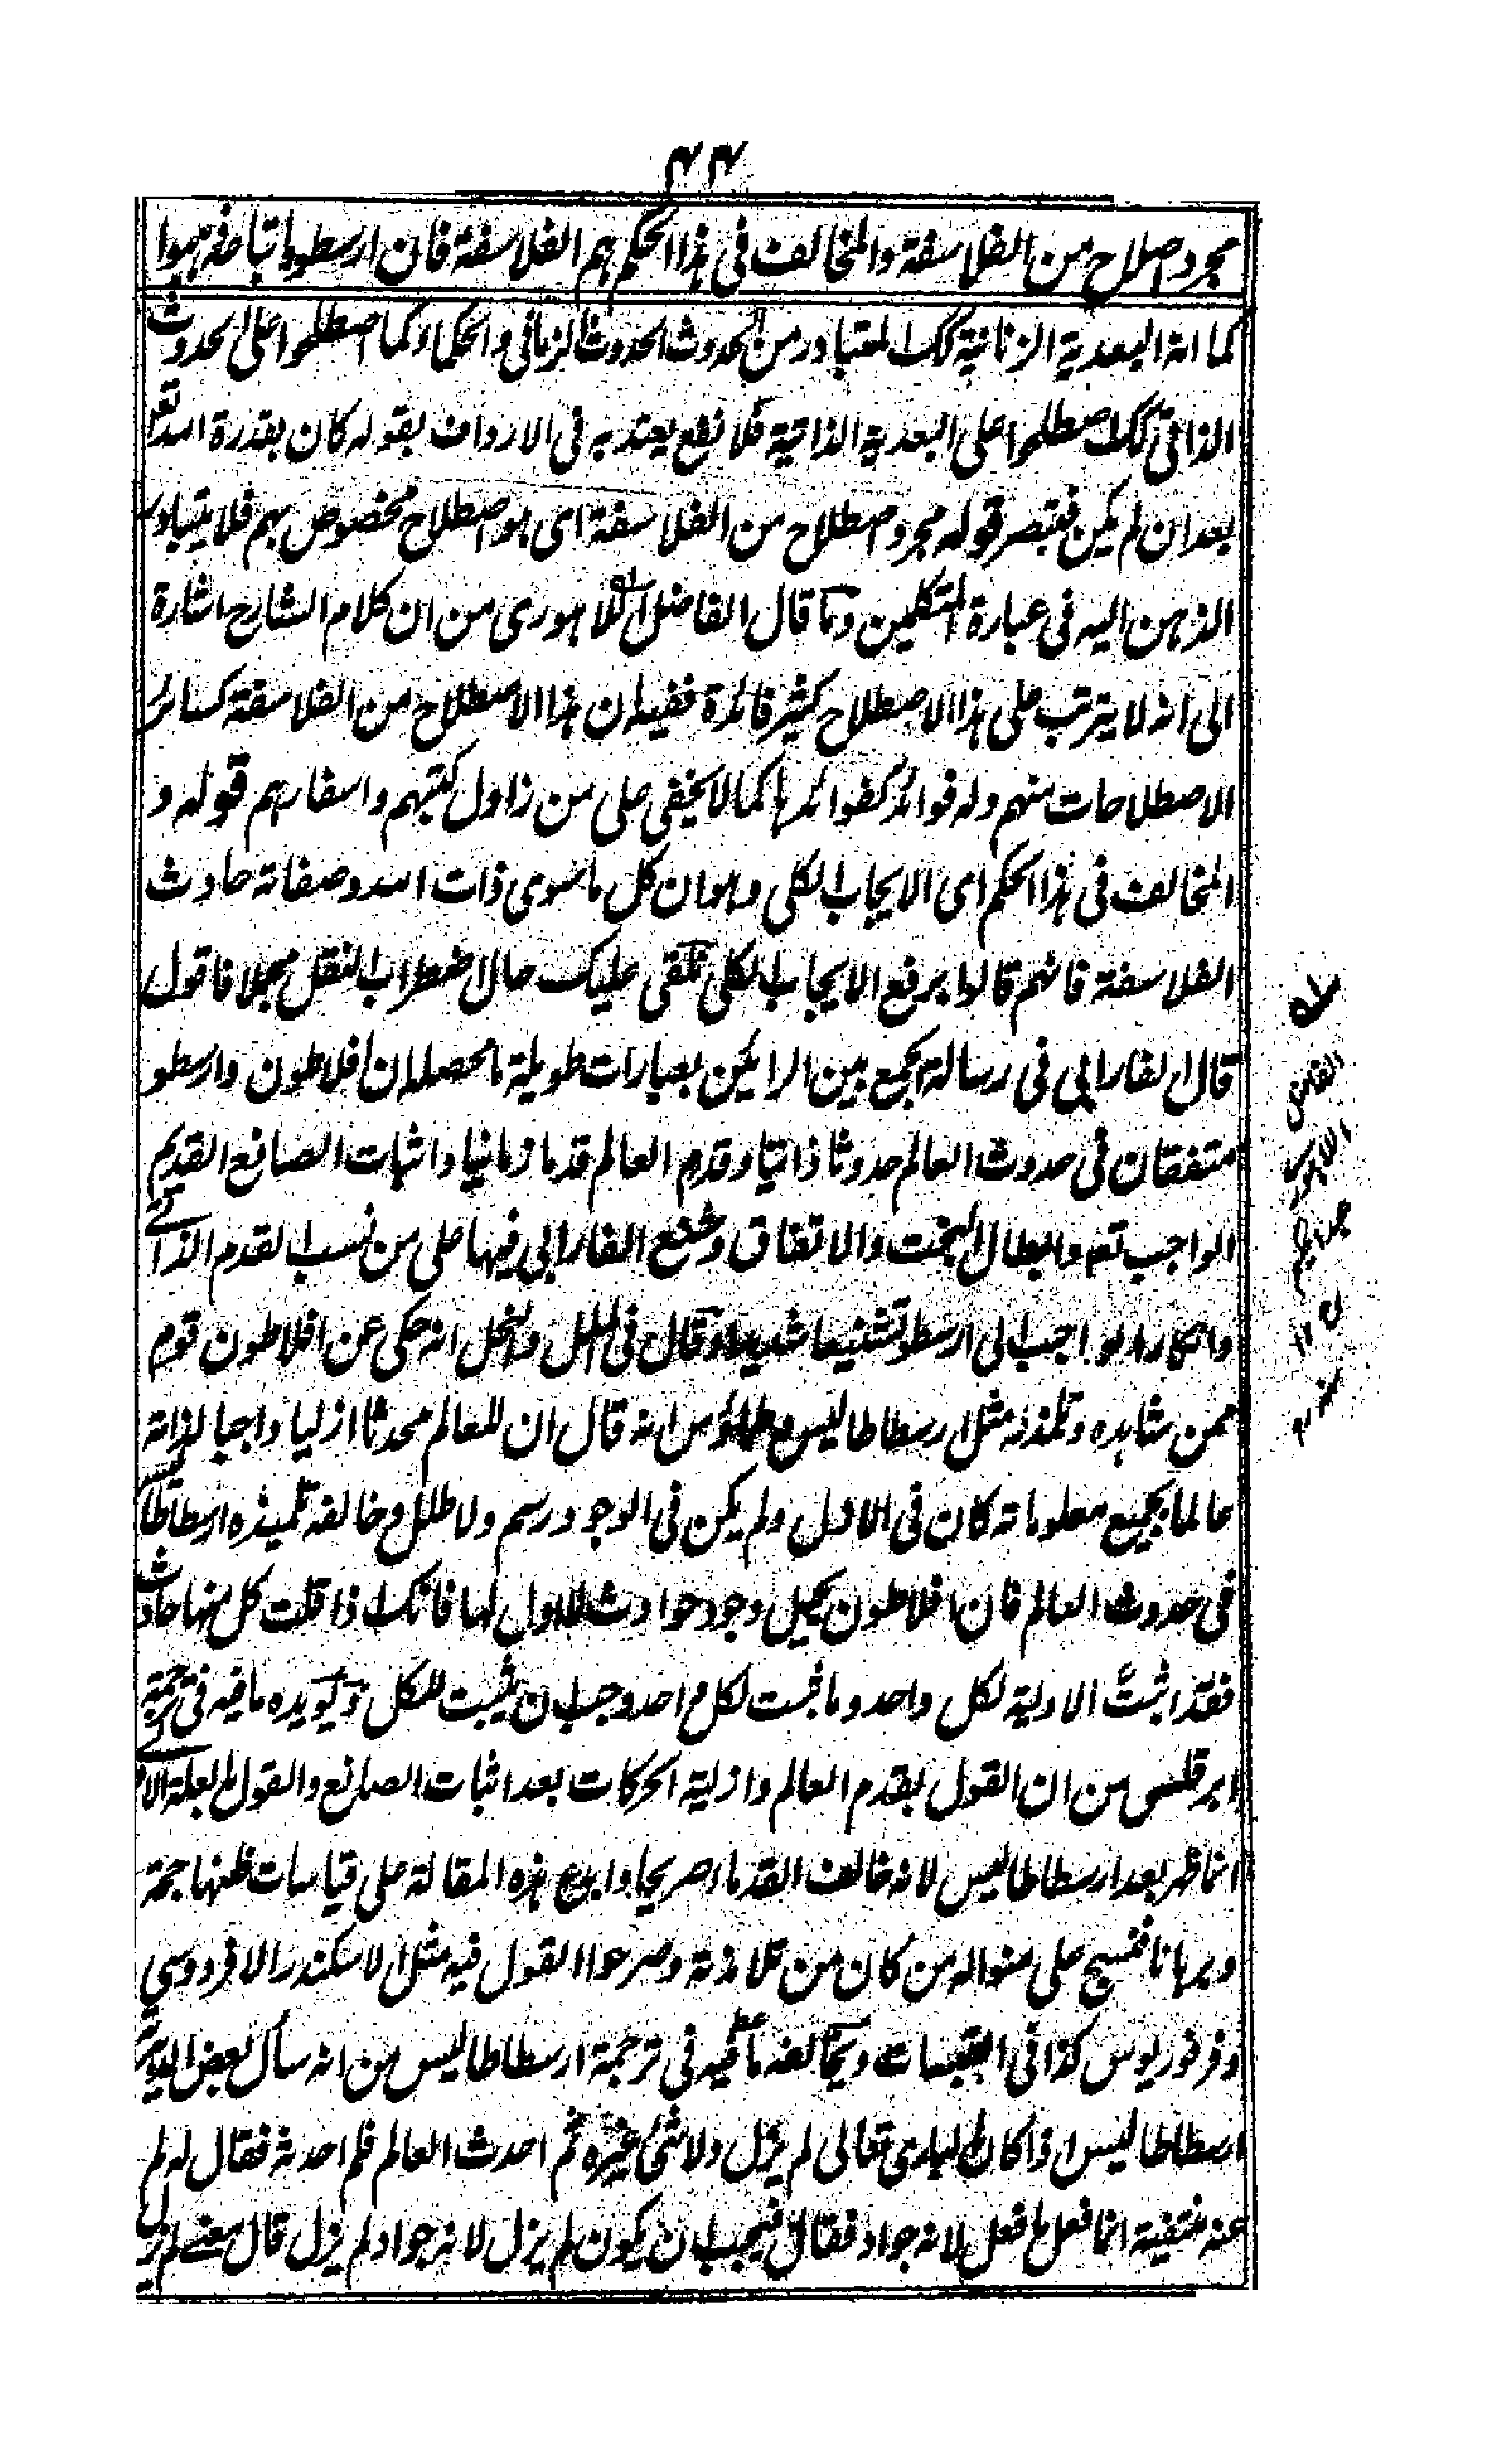 ٤٤
مجرد اصطلاح من الفلاسفة والمخالف فى هذا الحكم هم الفلاسفة فان ارسطو واتباعه ذهبوا
كما انه البعدية الزمانية كك المتبادر من الحدوث الحدوث الزمانى والحكماء كما اصطلحوا على الحدوث
الذاتى كك اصطلحوا على البعدية الذاتية فلا نفع يعتد به فى الارداف بقوله كان بقدرة الله تعالى
بعد ان لم يكن فتبصر قوله مجرد اصطلاح من الفلاسفة اى هو اصطلاح مخصوص بهم فلا يتبادر
الذهن اليه فى عبارة المتكلمين وما قال الفاضل اللاهورى من ان كلام الشارح اشارة
الى انه لا يترتب على هذا الاصطلاح كثير فائدة ففيه ان هذا الاصطلاح من الفلاسفة كسائر
الاصطلاحات منهم وله فوائد كفوائدها كما لا يخفى على من زاول كتبهم واسفارهم قوله و
المخالف فى هذا الحكم اى الايجاب الكلى وهو ان كل ما سوى ذات الله وصفاته حادث
الفلاسفة فانهم قالوا برفع الايجاب الكلى نلقى عليك حال اضطراب النقل مجملا فاقول
قال الفارابى فى رسالة الجمع بين الرايين بعبارات طويلة ما محصله ان افلاطون وارسطو
متفقان فى حدوث العالم حدوثا ذاتيا وقدم العالم قدما زمانيا واثبات الصانع القديم
الواجب تعه وابطال البخت والاتفاق وشنع الفارابى فيها على من نسب القدم الذاتى
وانكار الواجب الى ارسطو تشنيعا شديدا وقال فى الملل والنحل انه حكى عن افلاطون قوم
ممن شاهده وتلمذ له مثل ارسطاطاليس وطيماؤس انه قال ان للعالم محدثا ازليا واجبا لذاته
عالما بجميع معلوماته كان فى الازل ولم يكن فى الوجود رسم ولا طلل وخالفه تلميذه ارسطاطاليس
فى حدوث العالم فان افلاطون يحيل وجود حوادث لا اول لها فانك اذا قلت كل منها حادث
فقد اثبت الاولية لكل واحد وما ثبت لكل واحد وجب ان يثبت للكل ويؤيده ما فيه فى ترجمة
ابرقلس من ان القول بقدم العالم وازلية الحركات بعد اثبات الصانع والقول بالعلة الاولى
انما ظهر بعد ارسطاطاليس لانه خالف القدماء صريحا وابدع هذه المقالة على قياسات ظنها حجة
وبرهانا فنسج على منواله من كان من تلامذته وصرحوا القول فيه مثل الاسكندر الافردوسى
وفرفوريوس كذا فى القبسات ويخالفه ما فيه فى ترجمة ارسطاطاليس من انه سأل بعض الدهرية
ارسطاطاليس اذا كان البارى تعالى لم يزل ولا شئ غيره ثم احدث العالم فلم احدثه فقال له لم
عنه منتفية انما فعل ما فعل لانه جواد فقال فيجب ان يكون لم يزل لانه جواد لم يزل قال معنى لم يزل
الفاضل